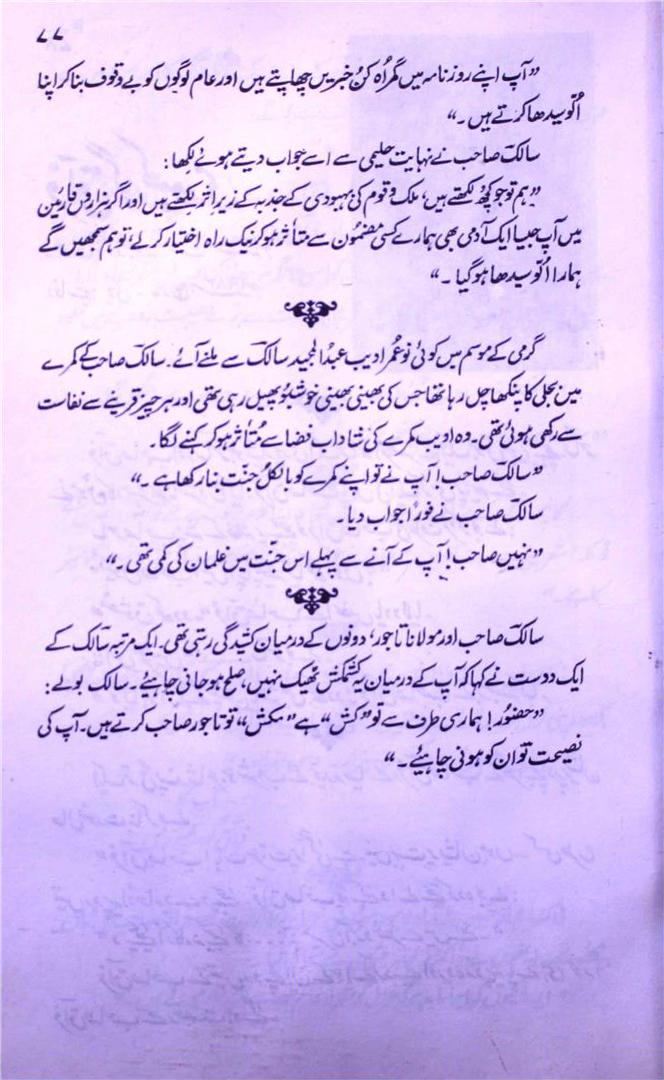 ۷۷
”آپ اپنے روزنامہ میں گمراہ کُن خبریں چھاپتے ہیں اور عام لوگوں کو بے وقوف بنا کر اپنا
اُلّو سیدھا کرتے ہیں۔“
سالکؔ صاحب نے نہایت حلیمی سے اسے جواب دیتے ہوئے لکھا:
”ہم تو جو کچھ لکھتے ہیں، ملک و قوم کی بہبودی کے جذبہ کے زیر اثر لکھتے ہیں اور اگر ہزاروں قارئین
میں آپ جیسا ایک آدمی بھی ہمارے کسی مضمون سے متأثر ہو کر نیک راہ اختیار کر لے، تو ہم سمجھیں گے
ہمارا اُلّو سیدھا ہو گیا۔“
گرمی کے موسم میں کوئی نو عمر ادیب عبدُالمجید سالکؔ سے ملنے آئے۔ سالکؔ صاحب کے کمرے
میں بجلی کا پنکھا چل رہا تھا جس کی بھینی بھینی خوشبو پھیل رہی تھی اور ہر چیز قرینے سے نفاست
سے رکھی ہوئی تھی۔ وہ ادیب کمرے کی شاداب فضا سے مُتأثر ہو کر کہنے لگا۔
”سالکؔ صاحب! آپ نے تو اپنے کمرے کو بالکل جنّت بنا رکھا ہے۔“
سالکؔ صاحب نے فوراً جواب دیا۔
”نہیں صاحب! آپ کے آنے سے پہلے اس جنّت میں غلمان کی کمی تھی۔“
سالکؔ صاحب اور مولانا تاجور، دونوں کے درمیان کشیدگی رہتی تھی۔ ایک مرتبہ سالکؔ کے
ایک دوست نے کہا کہ آپ کے درمیان یہ کشمکش ٹھیک نہیں، صلح ہو جانی چاہئے۔ سالکؔ بولے:
”حضوُر! ہماری طرف سے تو ”کش“ ہے ”مکش“ تو تاجور صاحب کرتے ہیں۔ آپ کی
نصیحت تو ان کو ہونی چاہیئے۔“